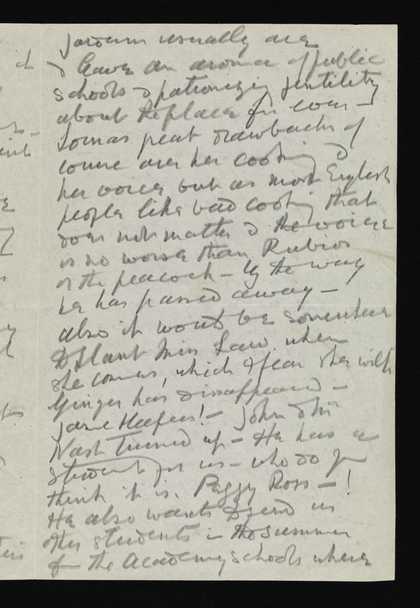 usually are
& leave an aroma of public
schools & patronizing gentility
about the place for ever –
Lornas great drawbacks of
course are her cooking &
her voice but as most English
people like bad cooking that
does not matter & the voice
is no worse than Rubios
or the peacock – by the way
he has passed away –
also it would be somewhere
to plant Miss Law when
she comes, which I fear she will
Ginger has disappeared –
John &
Nash turned up – He has a
student for us – who do you
think it is. Peggy Ross – !
He also wants to send us
other students in the summer
for the Academy schools where